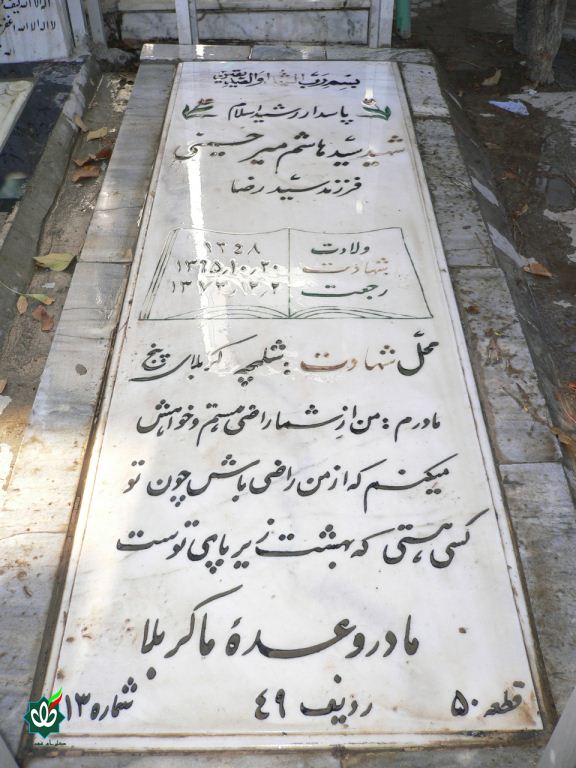 بسم رب الشهداء والصدیقین
پاسدار رشید اسلام
شهید سید هاشم میرحسینی
فرزند سید رضا
ولادت ۱۳۴۸
شهادت ۱۳۶۵٫۱۰٫۲۰
رجعت ۱۳۷۲٫۱۲٫۲
محل شهادت : شلمچه کربلای پنج
مادرم : من از شما راضی هستم و خواهش
میکنم که از من راضی باش چون تو
کسی هستی که بهشت زیر پای توست
مادر وعدهٔ ما کربلا
قطعه ۵۰ ردیف ۴۹ شماره ۱۳